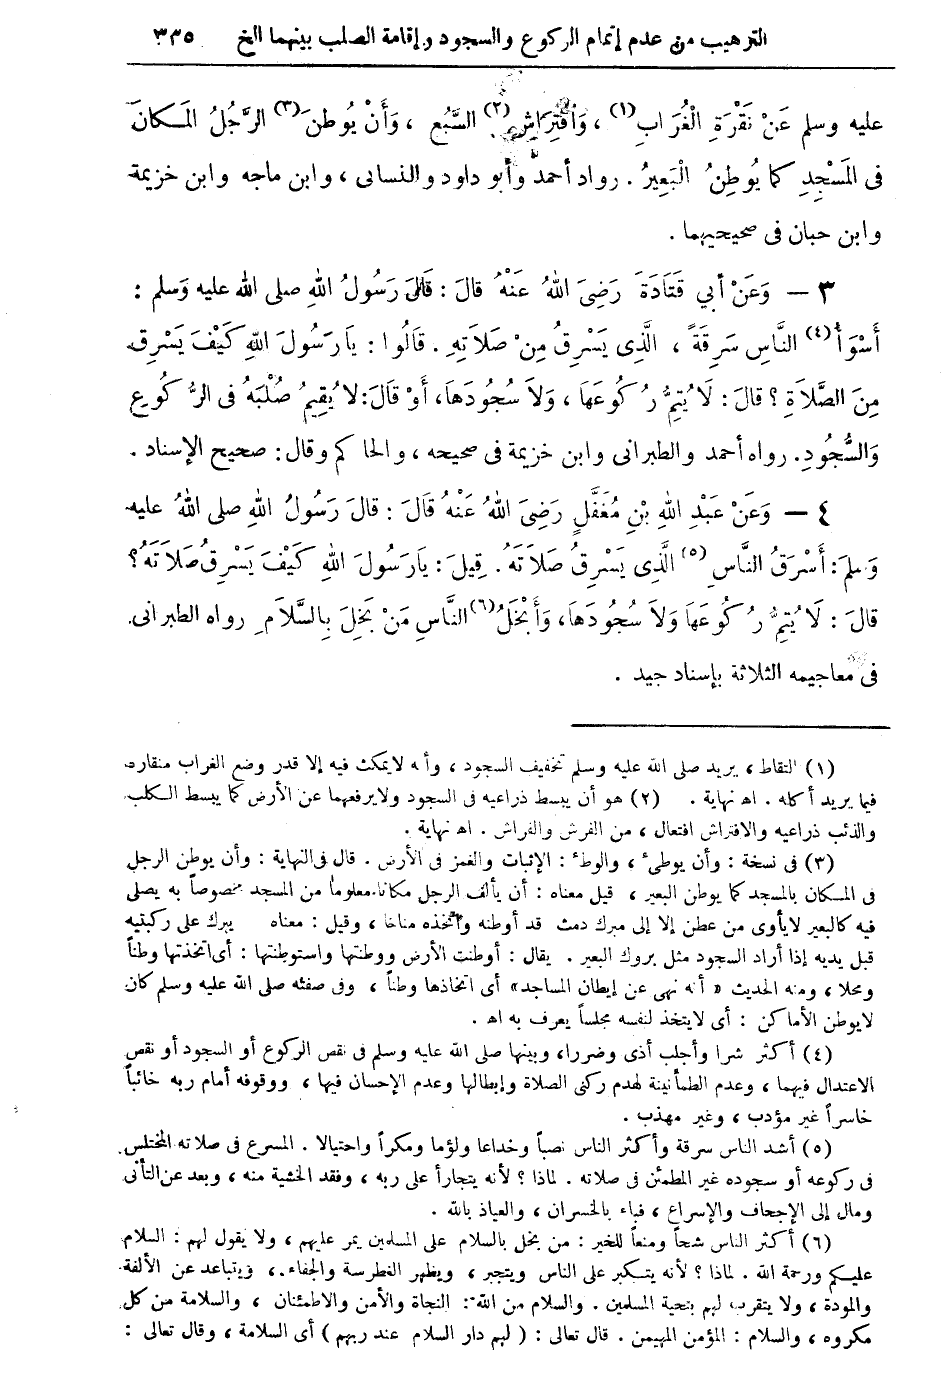 الترهيب من عدم إتمام الركوع والسجود وإقامة الصلب بينهما الخ ٣٣٥
عليه وسلم عَنْ نَقْرَةِ الْغُرَابِ (١) ، وَافْتِرَاشِ (٢) السَّبُعِ ، وَأَنْ يُوطِنَ (٣) الرَّجُلُ الْمَكَانَ
فِى الْمَسْجِدِ كَمَا يُوطِنُ الْبَعِيرُ . رواه أحمد وأبو داود والنسائى ، وابن ماجه وابن خزيمة
وابن حبان فى صحيحيهما .
٣ – وَعَنْ أَبِي قَتَادَةَ رَضِىَ اللهُ عَنْهُ قَالَ : قَالَ رَسُولُ اللهِ صلى الله عليه وَسلم :
أَسْوَأُ (٤) النَّاسِ سَرِقَةً ، الَّذِى يَسْرِقُ مِنْ صَلَاتِهِ . قَالُوا : يَارَسُولَ اللهِ كَيْفَ يَسْرِقُ
مِنَ الصَّلَاةِ ؟ قَالَ : لَا يُتِمُّ رُكُوعَهَا ، وَلَا سُجُودَهَا، أَوْ قَالَ: لَا يُقِيمُ صُلْبَهُ فِى الرُّكُوعِ
وَالسُّجُودِ. رواه أحمد والطبرانى وابن خزيمة فى صحيحه ، والحاكم وقال: صحيح الإسناد .
٤ – وَعَنْ عَبْدِ اللهِ بْنِ مُغَفَّلٍ رَضِىَ اللهُ عَنْهُ قَالَ : قَالَ رَسُولُ اللهِ صلى اللهُ عليه
وَسلم : أَسْرَقُ النَّاسِ (٥) الَّذِى يَسْرِقُ صَلَاتَهُ . قِيلَ : يَارَسُولَ اللهِ كَيْفَ يَسْرِقُ صَلَاتَهُ ؟
قَالَ : لَا يُتِمُّ رُكُوعَهَا وَلَا سُجُودَهَا، وَأَبْخَلُ (٦) النَّاسِ مَنْ بَخِلَ بِالسَّلَامِ رواه الطبرانى
فى معاجيمه الثلاثة بإسناد جيد .
(١) التقاط ، يريد صلى الله عليه وسلم تخفيف السجود ، وأنه لايمكث فيه إلا قدر وضع الغراب منقاره
فيما يريد أكله . اه نهاية . (٢) هو أن يبسط ذراعيه فى السجود ولايرفعهما عن الأرض كما يبسط الكلب
والذئب ذراعيه والافتراش افتعال ، من الفرش والفراش . اه نهاية .
(٣) فى نسخة : وأن يوطىء ، والوطء : الإثبات والغمز فى الأرض . قال فى النهاية : وأن يوطن الرجل
فى المكان بالمسجد كما يوطن البعير ، قيل معناه : أن يألف الرجل مكانا معلوماً من المسجد مخصوصاً به يصلى
فيه كالبعير لايأوى من عطن إلا إلى مبرك دمث قد أوطنه واتخذه مناخا ، وقيل : معناه يبرك على ركبتيه
قبل يديه إذا أراد السجود مثل بروك البعير . يقال : أوطنت الأرض ووطنتها واستوطنتها : أى اتخذتها وطناً
ومحلا ، ومنه الحديث « أنه نهى عن إيطان المساجد» أى اتخاذها وطناً ، وفى صفته صلى الله عليه وسلم كان
لايوطن الأماكن : أى لايتخذ لنفسه مجلساً يعرف به اه .
(٤) أكثر شرا وأجلب أذى وضررا، وبينها صلى الله عليه وسلم فى نقص الركوع أو السجود أو نقص
الاعتدال فيهما ، وعدم الطمأنينة لهدم ركنى الصلاة وإبطالها وعدم الإحسان فيها ، ووقوفه أمام ربه خائباً
خاسراً غير مؤدب ، وغير مهذب .
(٥) أشد الناس سرقة وأكثر الناس نصباً وخداعا ولؤما ومكراً واحتيالا . المسرع فى صلاته المختلس
فى ركوعه أو سجوده غير المطمئن فى صلاته . لماذا ؟ لأنه يتجارأ على ربه ، وفقد الخشية منه ، وبعد عن التأنى
ومال إلى الإجحاف والإسراع ، فباء بالخسران ، والعياذ بالله .
(٦) أكثر الناس شحاً ومنعاً للخير : من بخل بالسلام على المسلمين يمر عليهم ، ولا يقول لهم : السلام
عليكم ورحمة الله . لماذا ؟ لأنه يتكبر على الناس ويتجبر ، ويظهر الغطرسة والجفاء ، ويتباعد عن الألفة
والمودة ، ولا يتقرب لهم بتحية المسلمين . والسلام من الله : النجاة والأمن والاطمئنان ، والسلامة من كل
مكروه ، والسلام : المؤمن المهيمن . قال تعالى : ( لهم دار السلام عند ربهم ) أى السلامة ، وقال تعالى :